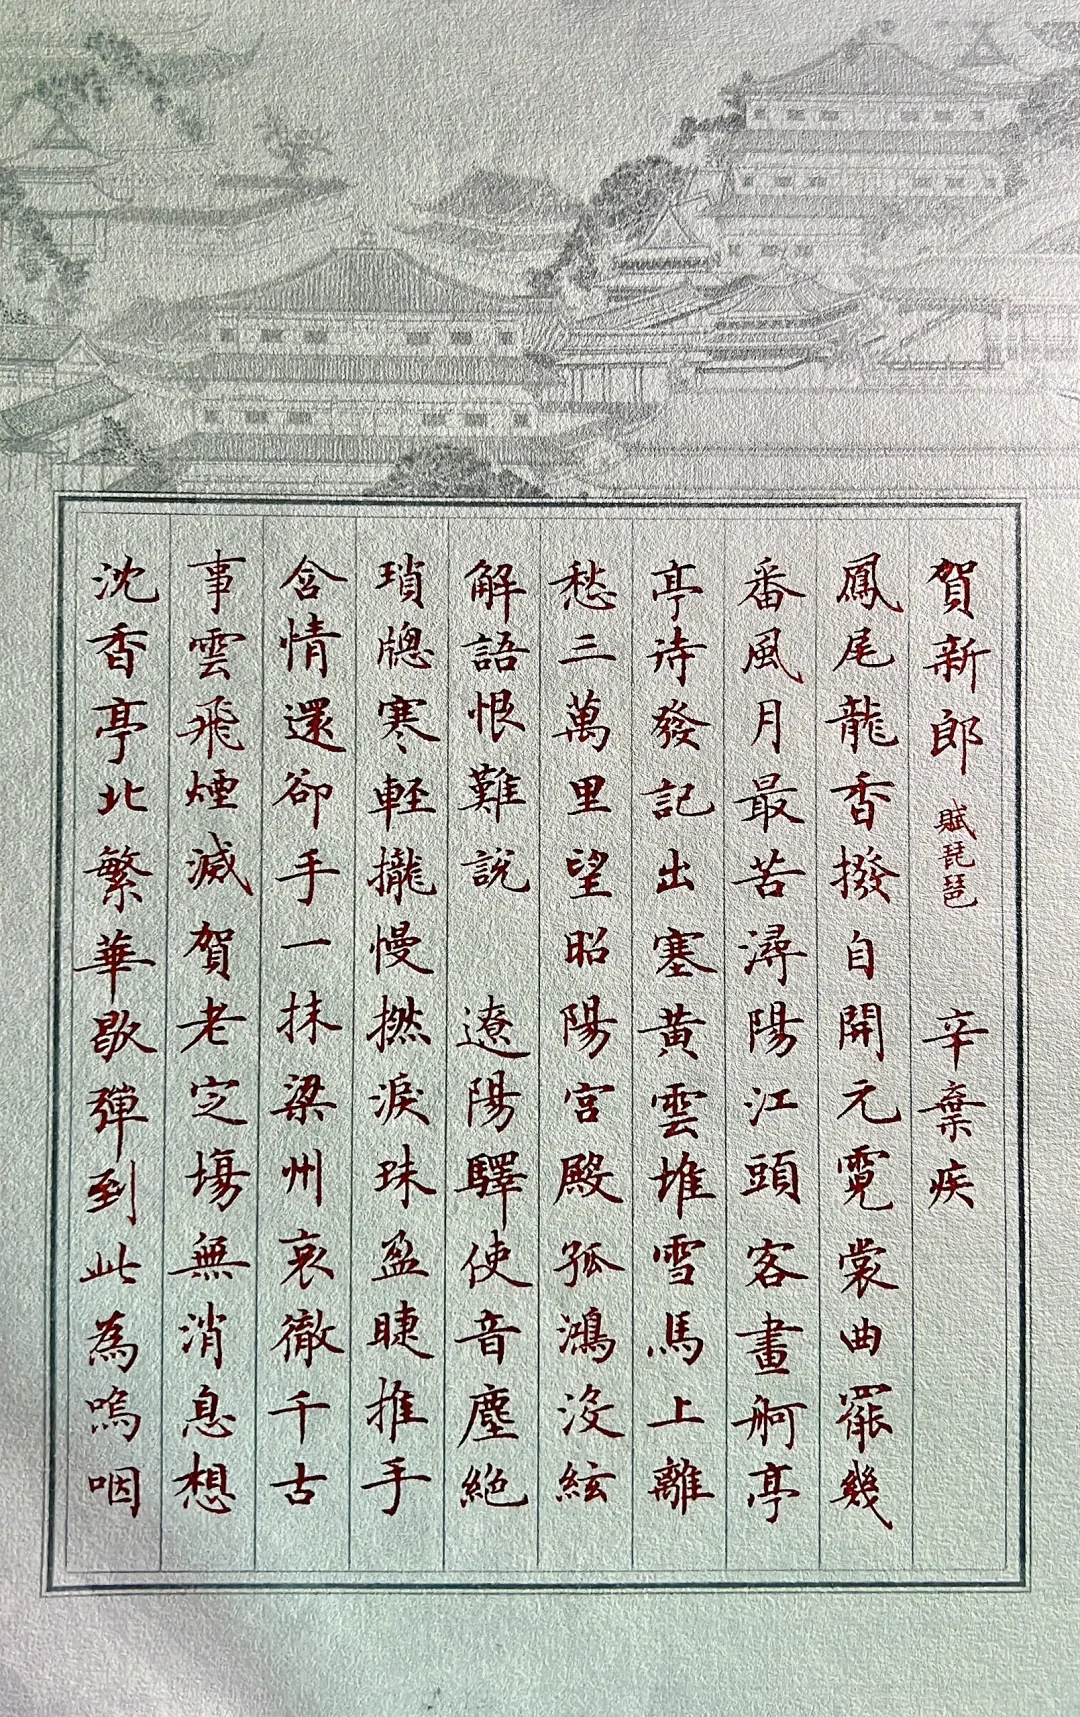 賀新郎 賦琵琶 辛棄疾
鳳尾龍香撥自開元霓裳曲罷幾
番風月最苦潯陽江頭客畫舸亭
亭待發記出塞黃雲堆雪馬上離
愁三萬里望昭陽宮殿孤鴻沒絃
解語恨難說 遼陽驛使音塵絕
瑣牕寒輕攏慢撚淚珠盈睫推手
含情還卻手一抹梁州哀徹千古
事雲飛煙滅賀老定場無消息想
沈香亭北繁華歇彈到此為嗚咽